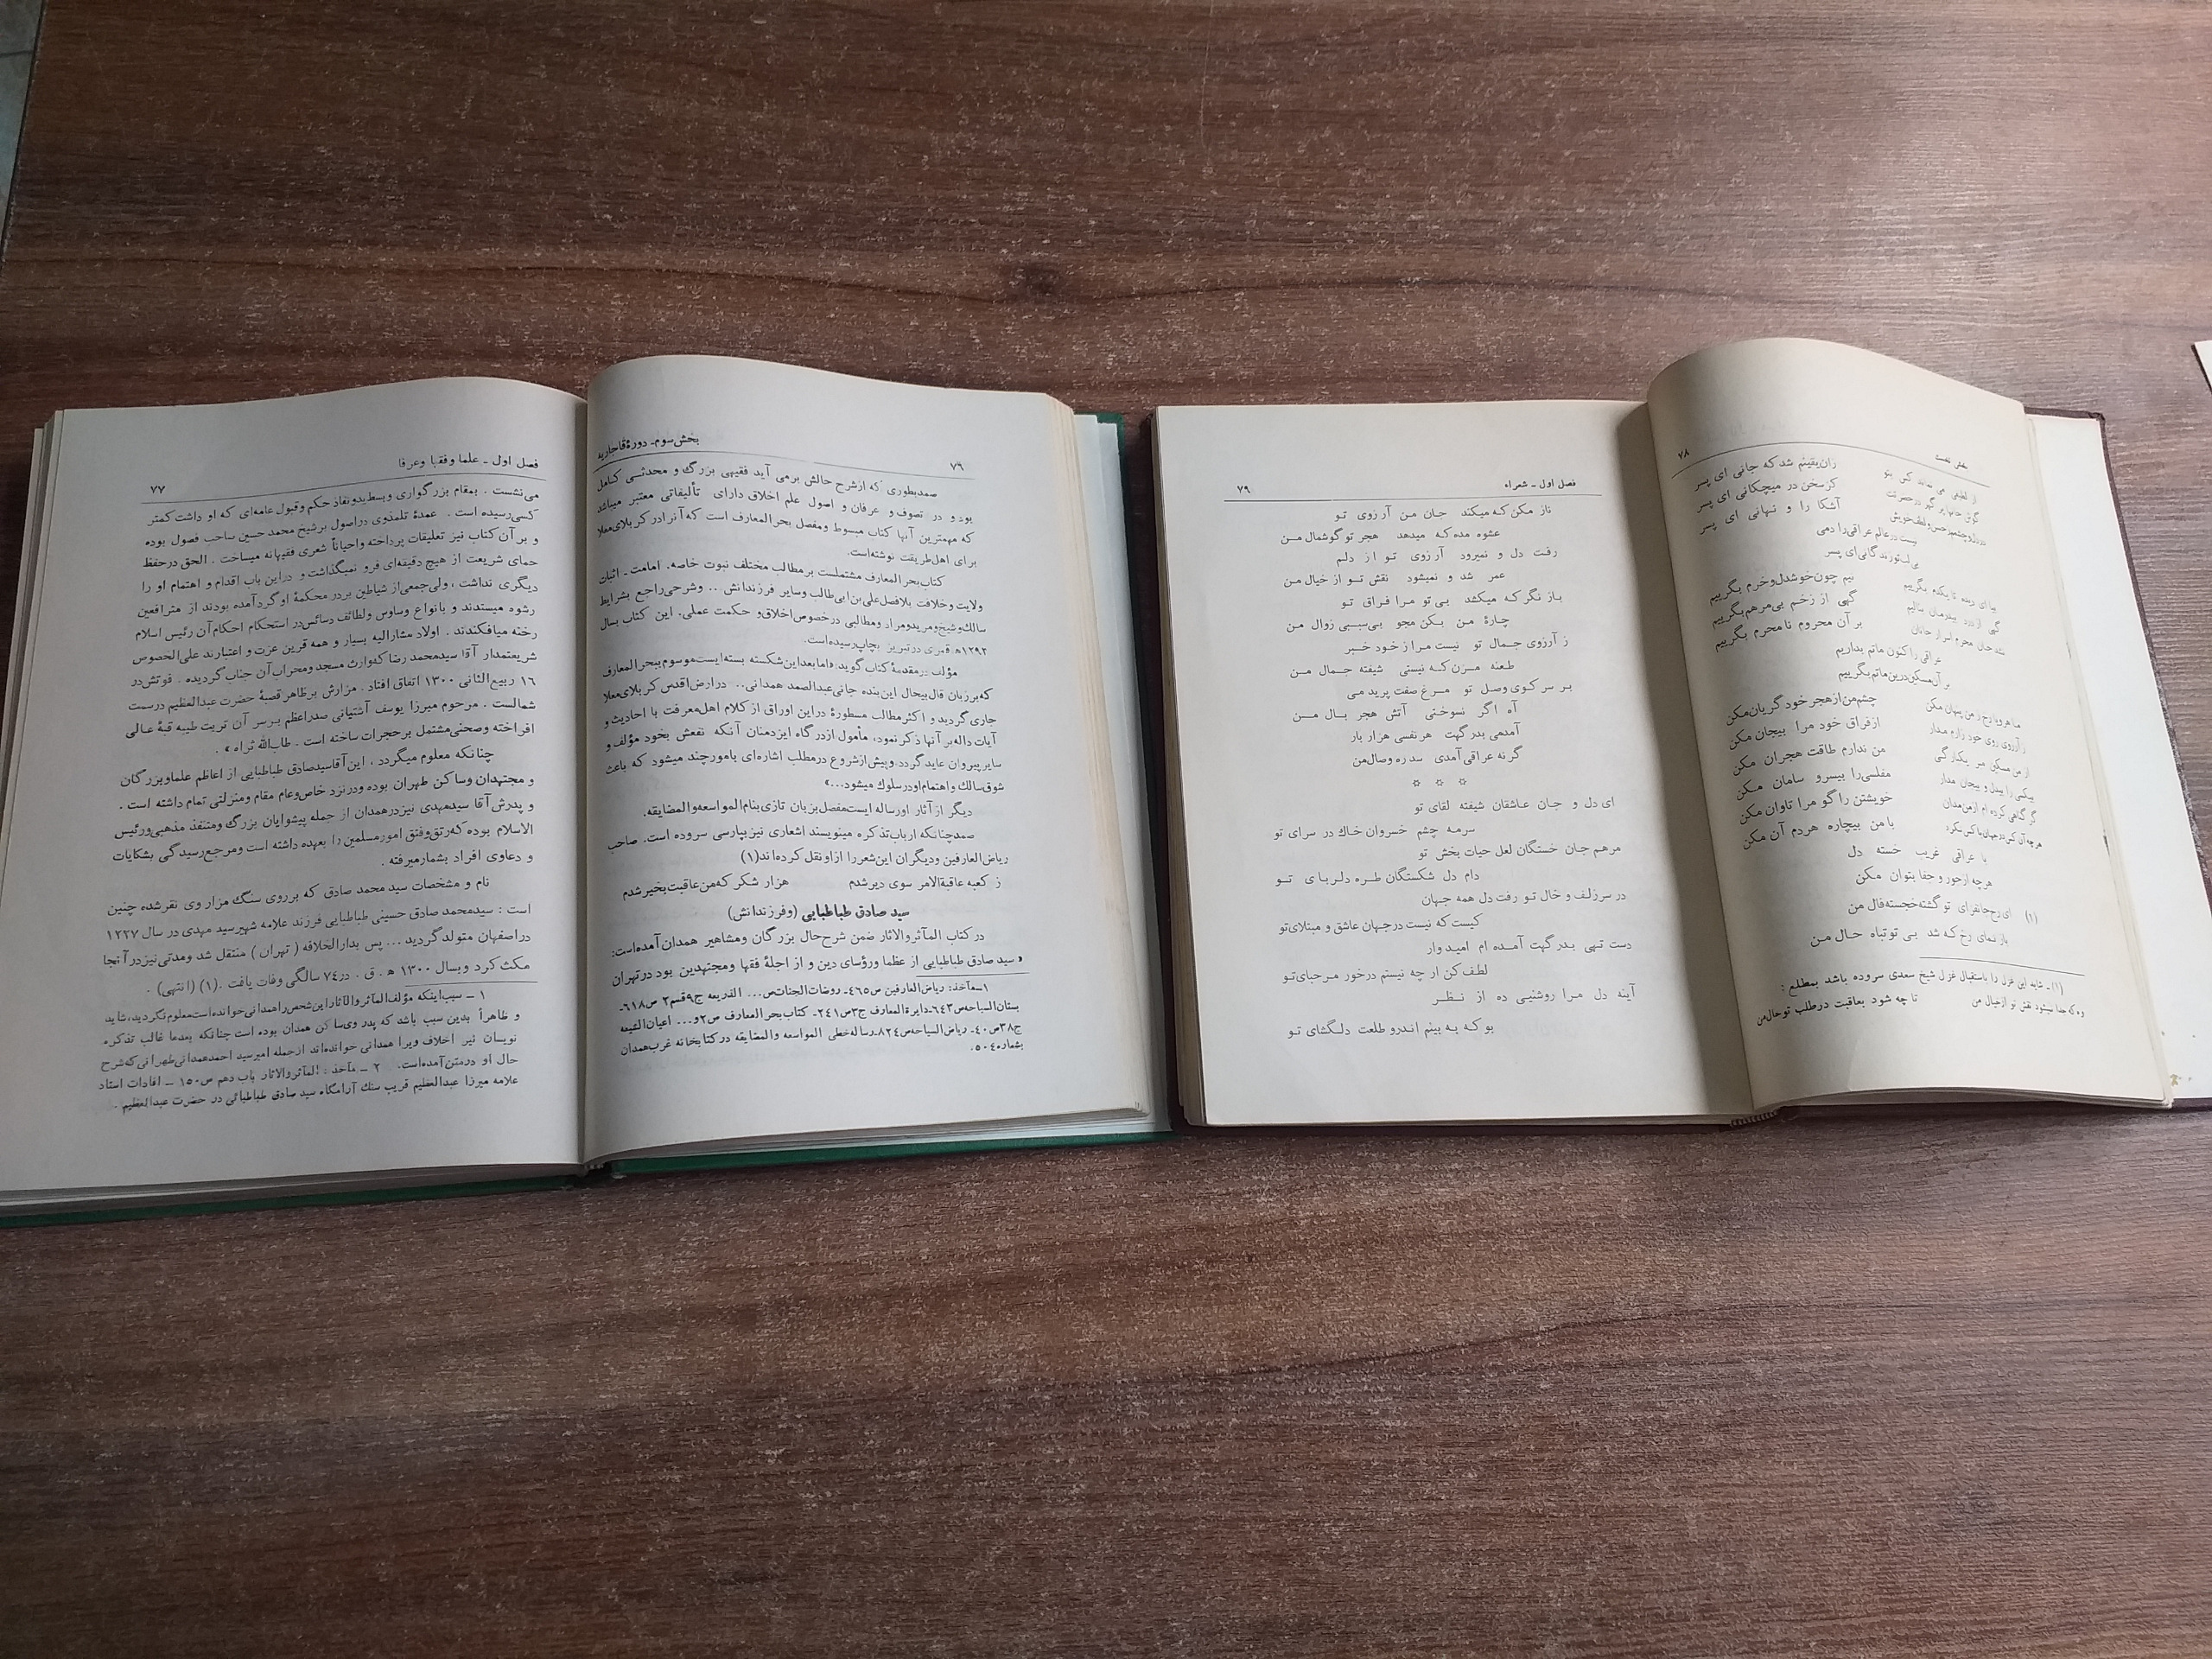 ۷۸
زان یقینم شد که جانی ای پسر
کز سخن در میچکانی ای پسر
آشکارا و نهانی ای پسر
نیست در عالم عراقی را دمی
بی لب تو زندگانی ای پسر
بیا ای دیده تا یکدم بگرییم
نیم چون خوشدل و خرم بگرییم
گهی از درد بیدرمان بنالیم
گهی از زخم بی مرهم بگرییم
بر آن محروم نامحرم بگرییم
عراقی را کنون ماتم بداریم
بر آن مسکین درین ماتم بگرییم
چشم من از هجر خود گریان مکن
ز آرزوی روی خود زارم مدار
از فراق خود مرا بیجان مکن
من ندارم طاقت هجران مکن
مفلسی را بیسر و سامان مکن
گر گناهی کرده ام از من مدان
خویشتن را گو مرا تاوان مکن
با من بیچاره هر دم آن مکن
با عراقی غریب خسته دل
هر چه از جور و جفا بتوان مکن
(۱) ای رخ جانفزای تو گشته خجسته فال من
باز نمای رخ که شد بی تو تباه حال من
(۱)ـ شابه این غزل را باستقبال غزل شیخ سعدی سروده باشد بمطلع :
وه که جدا نمیشود نقش تو از خیال من
تا چه شود بعاقبت در طلب تو حال من
فصل اول ـ شعراء
۷۹
ناز مکن که میکند جان من آرزوی تو
عشوه مده که میدهد هجر تو گوشمال من
رفت دل و نمیرود آرزوی تو از دلم
عمر شد و نمیشود نقش تو از خیال من
باز نگر که میکشد بی تو مرا فراق تو
چارهٔ من بکن مجو بی سببی زوال من
ز آرزوی جمال تو نیست مرا ز خود خبر
طعنه مزن که نیستی شیفته جمال من
بر سر کوی وصل تو مرغ صفت پرید می
آه اگر نسوختی آتش هجر بال من
آمدمی بدر گهت هر نفسی هزار بار
گرنه عراقی آمدی سد ره وصال من
☆ ☆ ☆
ای دل و جان عاشقان شیفته لقای تو
سرمه چشم خسروان خاك در سرای تو
مرهم جان خستگان لعل حیات بخش تو
دام دل شکستگان طره دلربای تو
در سر زلف و خال تو رفت دل همه جهان
کیست که نیست در جهان عاشق و مبتلای تو
دست تهی بدر گهت آمده ام امیدوار
لطف کن ار چه نیستم در خور مرحبای تو
آینه دل مرا روشنیی ده از نظر
بو که به بینم اندرو طلعت دلگشای تو
بخش سوم ـ دورهٔ قاجاریه
۷۶
صمد بطوری که از شرح حالش برمی آید فقیهی بزرگ و محدثی کامل
بود و در تصوف و عرفان و اصول علم اخلاق دارای تألیفاتی معتبر میباشد
که مهمترین آنها کتاب مبسوط و مفصل بحر المعارف است که آنرا در کربلای معلا
برای اهل طریقت نوشته است.
کتاب بحر المعارف مشتملست بر مطالب مختلف نبوت خاصه. امامت ـ اثبات
ولایت و خلافت بلافصل علی بن ابی طالب و سایر فرزندانش .. و شرحی راجع بشرایط
سالك و شیخ و مرید و مراد و مطالبی در خصوص اخلاق و حکمت عملی. این کتاب بسال
۱۲۹۳ ه‍. قمری در تبریز بچاپ رسیده است.
مؤلف در مقدمهٔ کتاب گوید: «اما بعد این شکسته بسته ایست موسوم ببحر المعارف
که بر زبان قال بیحال این بنده جانی عبدالصمد همدانی.. در ارض اقدس کربلای معلا
جاری گردید و اکثر مطالب مسطوره در این اوراق از کلام اهل معرفت با احادیث و
آیات داله بر آنها ذکر نمود، مأمول از درگاه ایزد منان آنکه نفعش بخود مؤلف و
سایر پیروان عاید گردد. و پیش از شروع در مطلب اشاره ای بامور چند میشود که باعث
شوق سالك و اهتمام او در سلوك میشود...»
دیگر از آثار او رساله ایست مفصل بزبان تازی بنام المواسعه و المضایقه.
صمد چنانکه ارباب تذکره مینویسند اشعاری نیز بپارسی سروده است. صاحب
ریاض العارفین و دیگران این شعر را از او نقل کرده اند(۱)
ز کعبه عاقبة الامر سوی دیر شدم هزار شکر که من عاقبت بخیر شدم
سید صادق طباطبایی (و فرزندانش)
در کتاب المآثر والاثار ضمن شرح حال بزرگان و مشاهیر همدان آمده است:
« سید صادق طباطبایی از عظما و رؤسای دین و از اجلهٔ فقها و مجتهدین بود در تهران
۱ـ مآخذ: ریاض العارفین ص۴۶۵ـ روضات الجنات ص... الذریعه ج۹ قسم۲ ص۶۱۸ـ
بستان السیاحه ص۶۴۳ـ دایرة المعارف ج۳ ص۲۴۱ـ کتاب بحر المعارف ص۲ و... اعیان الشیعه
ج۳۸ ص۴۰ـ ریاض السیاحه ص۸۲۴ـ رساله خطی المواسعه و المضایقه در کتابخانه غرب همدان
بشماره ۵۰۴.
فصل اول ـ علما و فقها و عرفا
۷۷
می نشست . بمقام بزرگواری و بسط ید و نفاذ حکم و قبول عامه ای که او داشت کمتر
کسی رسیده است . عمدهٔ تلمذوی در اصول بر شیخ محمد حسین صاحب فصول بوده
و بر آن کتاب نیز تعلیقات پرداخته و احیاناً شعری فقیهانه میساخت . الحق در حفظ
حمای شریعت از هیچ دقیقه ای فرو نمیگذاشت و در این باب اقدام و اهتمام او را
دیگری نداشت ، ولی جمعی از شیاطین بر در محکمهٔ او گرد آمده بودند از مترافعین
رشوه میستدند و بانواع وساوس و لطائف رسائس در استحکام احکام آن رئیس اسلام
رخنه میافکندند . اولاد مشارالیه بسیار و همه قرین عزت و اعتبارند علی الخصوص
شریعتمدار آقا سید محمد رضا که وارث مسجد و محراب آن جناب گردیده . فوتش در
۱۶ ربیع الثانی ۱۳۰۰ اتفاق افتاد . مزارش بر ظاهر قصبهٔ حضرت عبدالعظیم در سمت
شمالست . مرحوم میرزا یوسف آشتیانی صدراعظم بر سر آن تربت طیبه قبهٔ عالی
افراخته و صحنی مشتمل بر حجرات ساخته است . طاب الله ثراه » .
چنانکه معلوم میگردد ، این آقا سید صادق طباطبایی از اعاظم علما و بزرگان
و مجتهدان و ساکن طهران بوده و در نزد خاص و عام مقام و منزلتی تمام داشته است .
و پدرش آقا سید مهدی نیز در همدان از جمله پیشوایان بزرگ و متنفذ مذهبی و رئیس
الاسلام بوده که رتق و فتق امور مسلمین را بعهده داشته است و مرجع رسیدگی بشکایات
و دعاوی افراد بشمار میرفته .
نام و مشخصات سید محمد صادق که بر روی سنگ مزار وی نقر شده چنین
است : سید محمد صادق حسینی طباطبایی فرزند علامه شهیر سید مهدی در سال ۱۲۲۷
در اصفهان متولد گردید ... پس بدار الخلافه ( تهران ) منتقل شد و مدتی نیز در آنجا
مکث کرد و بسال ۱۳۰۰ ه‍ . ق . در ۷۴ سالگی وفات یافت .(۱) (انتهی) .
۱ ـ سبب اینکه مؤلف المآثر والاثار این شخص را همدانی خوانده است معلوم نگردید، شاید
و ظاهراً بدین سبب باشد که پدر وی ساکن همدان بوده است چنانکه بعدها غالب تذکره
نویسان نیز اخلاف ویرا همدانی خوانده اند از جمله امیر سید احمد همدانی طهرانی که شرح
حال او در متن آمده است. ۲ ـ مآخذ : المآثر والاثار باب دهم ص۱۵۰ ـ افادات استاد
علامه میرزا عبدالعظیم قریب سنگ آرامگاه سید صادق طباطبائی در حضرت عبدالعظیم .